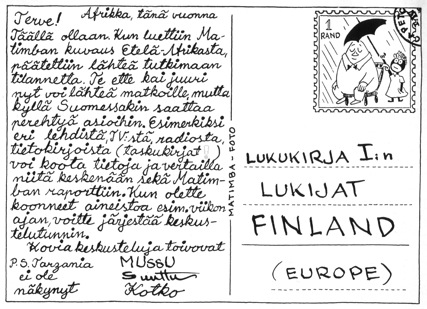 Afrikka, tänä vuonna
Terve!
Täällä ollaan. Kun luettiin Ma-
timban kuvaus Etelä-Afrikasta,
päätettiin lähteä tutkimaan
tilannetta. Te ette kai juuri
nyt voi lähteä matkoille, mutta
kyllä Suomessakin saattaa
perehtyä asioihin. Esimerkiksi
eri lehdistä, TV:stä, radiosta,
tietokirjoista (taskukirjat!)
voi koota tietoja ja vertailla
niitä keskenään sekä Matim-
ban raporttiin. Kun olette
koonneet aineistoa esim. viikon
ajan, voitte järjestää keskus-
telutunnin.
Kovia keskusteluja toivovat
P.S. Tarzania
ei ole
näkynyt
MUSSU
Suttu
Kotko
MATIMBA-FOTO
1
RAND
LUKUKIRJA I:n
LUKIJAT
FINLAND
(EUROPE)